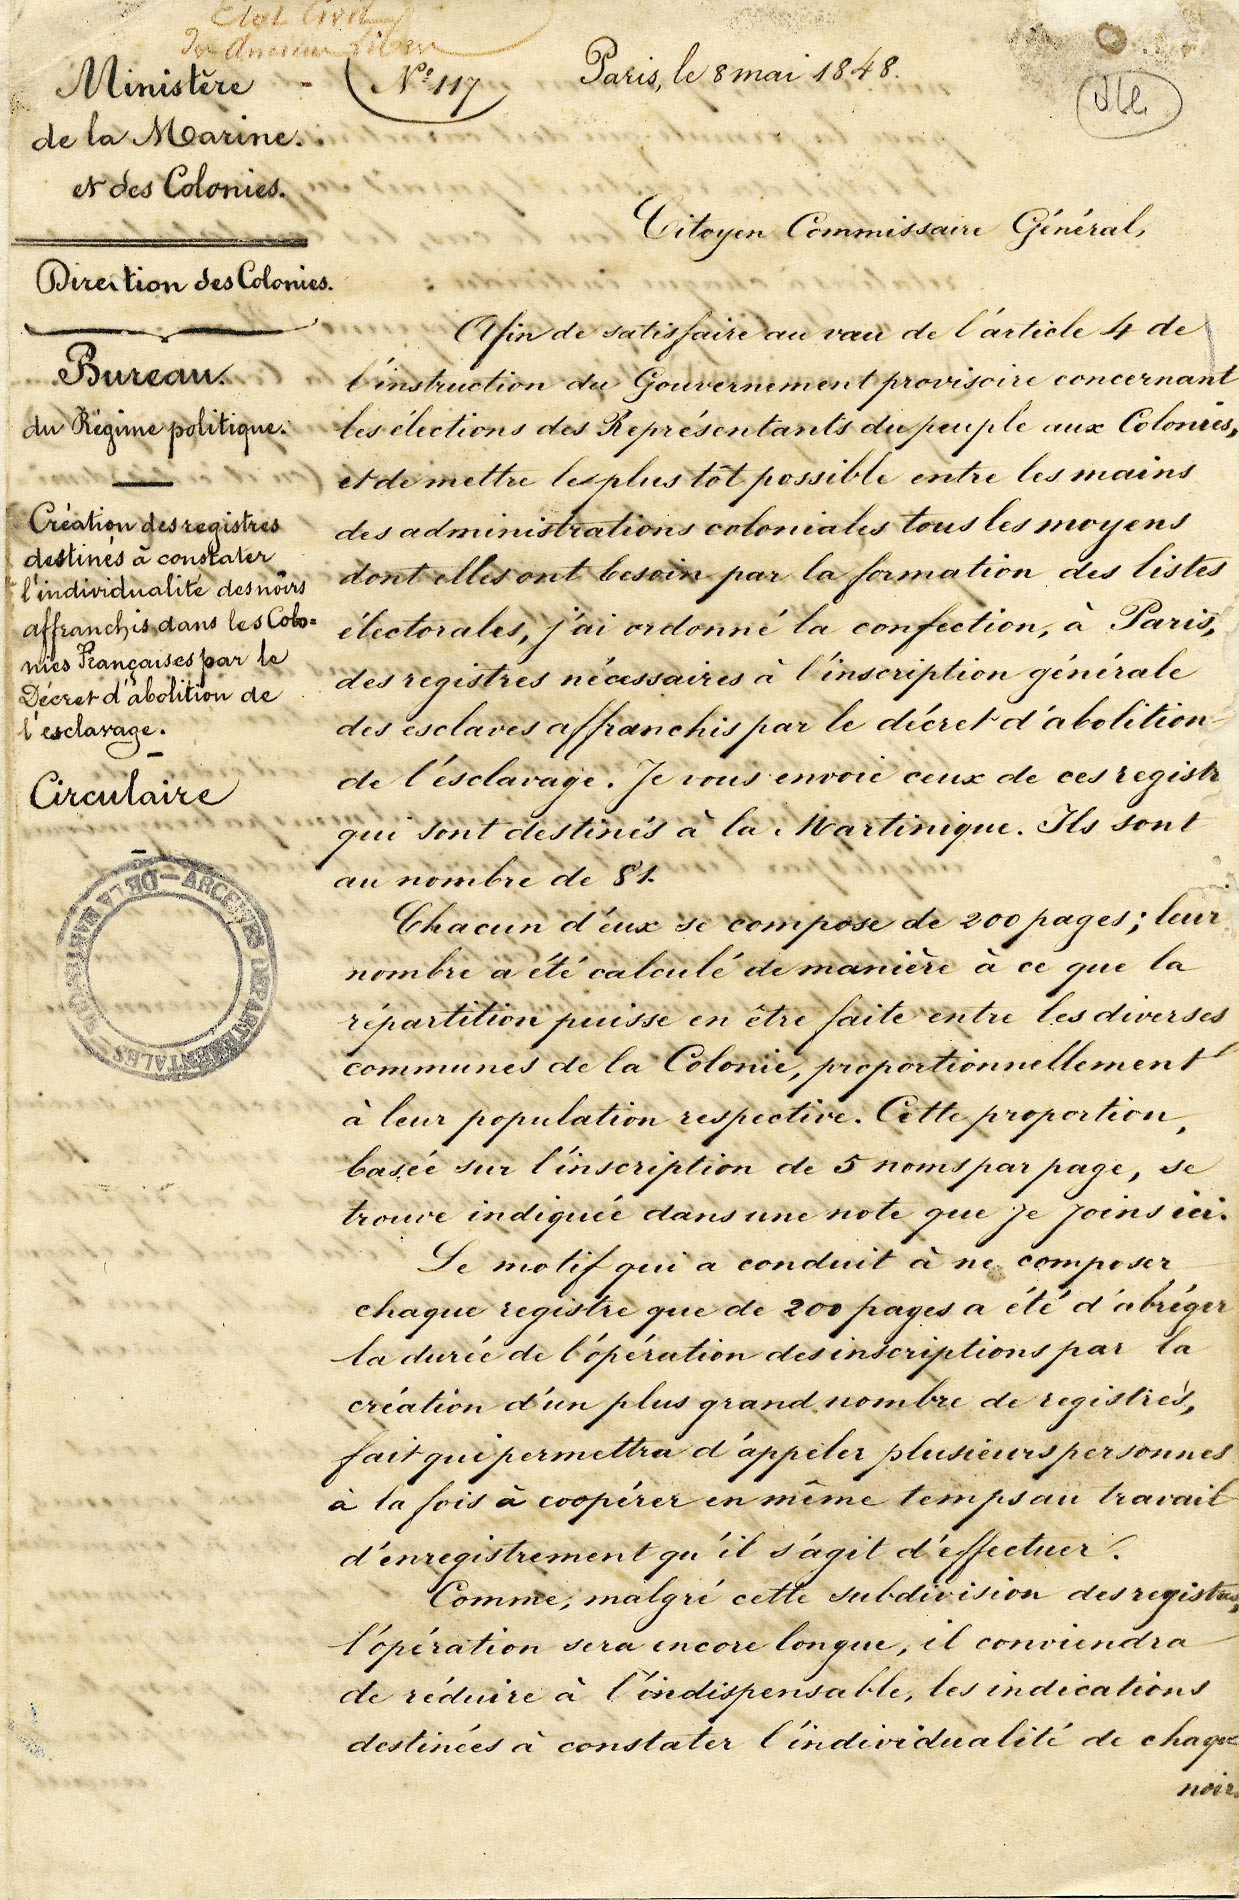 Etat Civil
Ministère
de la Marine.
et des Colonies.
Nº 117
Paris, le 8 mai 1848.
Direction des Colonies.
Bureau
du Régime politique.
Création des registres
destinés à constater
l'individualité des noirs
affranchis dans les Colo=
nies Françaises par le
Décret d'abolition de
l'esclavage.
Circulaire
ARCHIVES DEPARTEMENTALES - DE LA MARTINIQUE -
Citoyen Commissaire Général,
Afin de satisfaire au vœu de l'article 4 de
l'instruction du Gouvernement provisoire concernant
les élections des Représentants du peuple aux Colonies,
et de mettre le plus tôt possible entre les mains
des administrations coloniales tous les moyens
dont elles ont besoin par la formation des listes
électorales, j'ai ordonné la confection, à Paris,
des registres nécessaires à l'inscription générale
des esclaves affranchis par le décret d'abolition
de l'ésclavage. Je vous envoie ceux de ces registr
qui sont destinés à la Martinique. Ils sont
au nombre de 81.
Chacun d'eux se compose de 200 pages; leur
nombre a été calculé de manière à ce que la
répartition puisse en être faite entre les diverses
communes de la Colonie, proportionnellement
à leur population respective. Cette proportion,
basée sur l'inscription de 5 noms par page, se
trouve indiquée dans une note que je joins ici.
Le motif qui a conduit à ne composer
chaque registre que de 200 pages a été d'abréger
la durée de l'opération des inscriptions par la
création d'un plus grand nombre de registres,
fait qui permettra d'appeler plusieurs personnes
à la fois à coopérer en même temps au travail
d'enregistrement qu'il s'agit d'effectuer.
Comme, malgré cette subdivision des registres,
l'opération sera encore longue, il conviendra
de réduire à l'indispensable, les indications
destinées à constater l'individualité de chaque
noir.